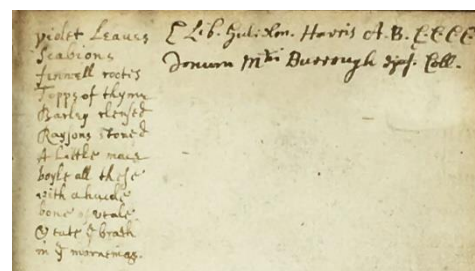 violet Leaves
Scabious
finnell rootes
Topps of thyme
Barley clensed
Raysons stoned
A Little mace
boyle all these
with a
bone of veale
& take yͤ broth
in yͤ mornings.
E Lib. Gul: Harris A.B.
Donum Mri Burrough Coll.